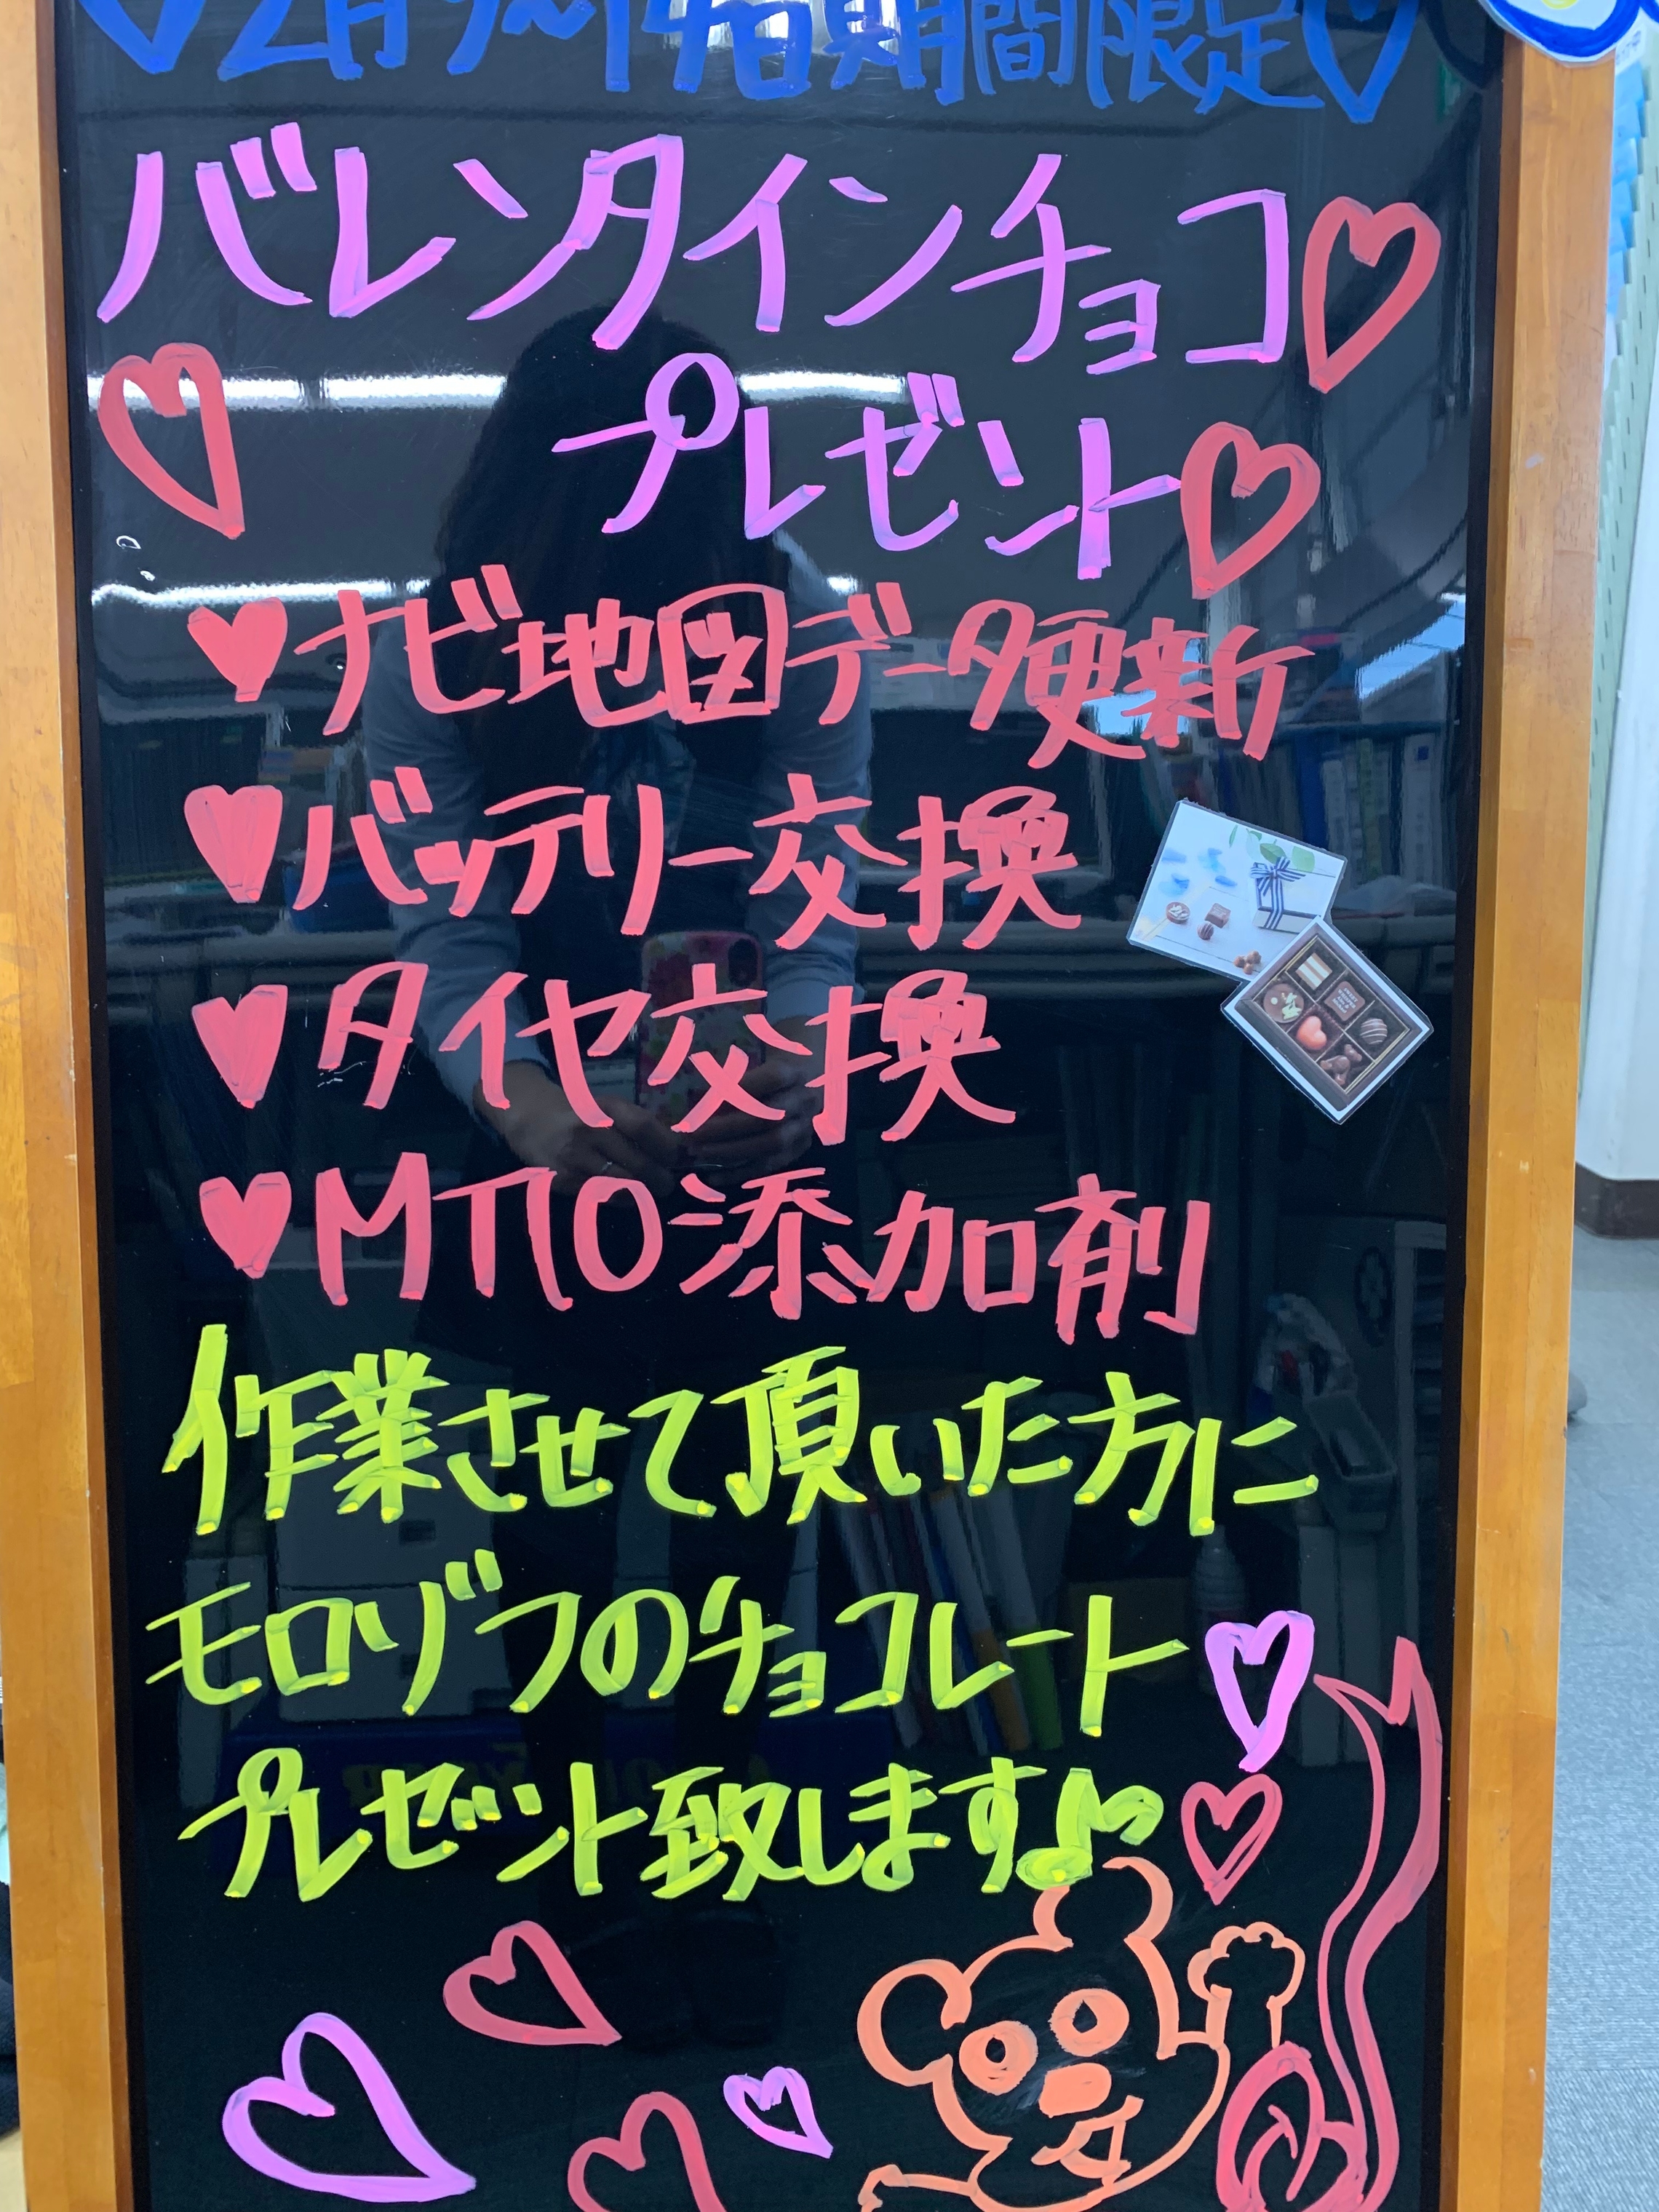 ♡2月9〜14日期間限定♡
バレンタインチョコ♡
♡プレゼント♡
♥ナビ地図データ更新
♥バッテリー交換
♥タイヤ交換
♥MTIO添加剤
作業させて頂いた方に
モロゾフのチョコレート♡
プレゼント致します♪♡